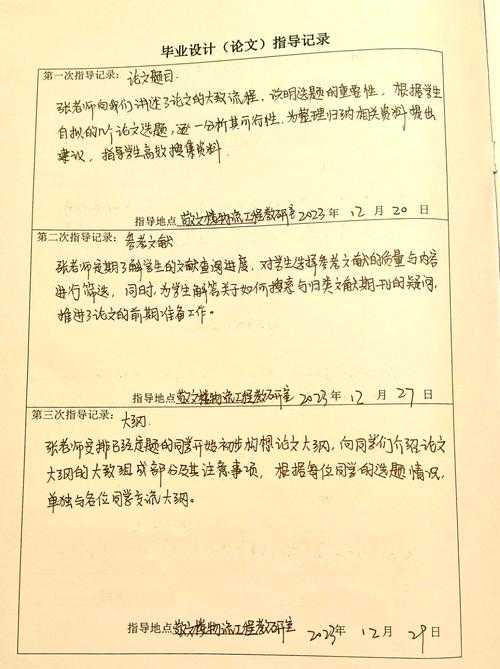 毕业设计（论文）指导记录
第一次指导记录：论文题目.
张老师向我们讲述了论文的大致流程，说明选题的重要性，根据学生
自拟的几个论文选题，逐一分析其可行性，为整理归纳相关资料提出
建议，指导学生高效搜集资料.
指导地点敬文楼物流工程教研室2023年12月20日
第二次指导记录：参考文献
张老师定期了解学生的文献查阅进度，对学生选择参考文献的质量与内容
进行筛选，同时，为学生解答关于如何搜索与归类文献期刊的疑问，
推进了论文的前期准备工作。
指导地点敬文楼物流工程教研室2023年12月27日
第三次指导记录：大纲.
张老师安排已经定题的同学开始初步构想论文大纲，向同学们介绍论文
大纲的大致组成部分及其注意事项，根据每位同学的选题情况，
单独与各位同学交流大纲。
指导地点敬文楼物流工程教研室2023年12月29日